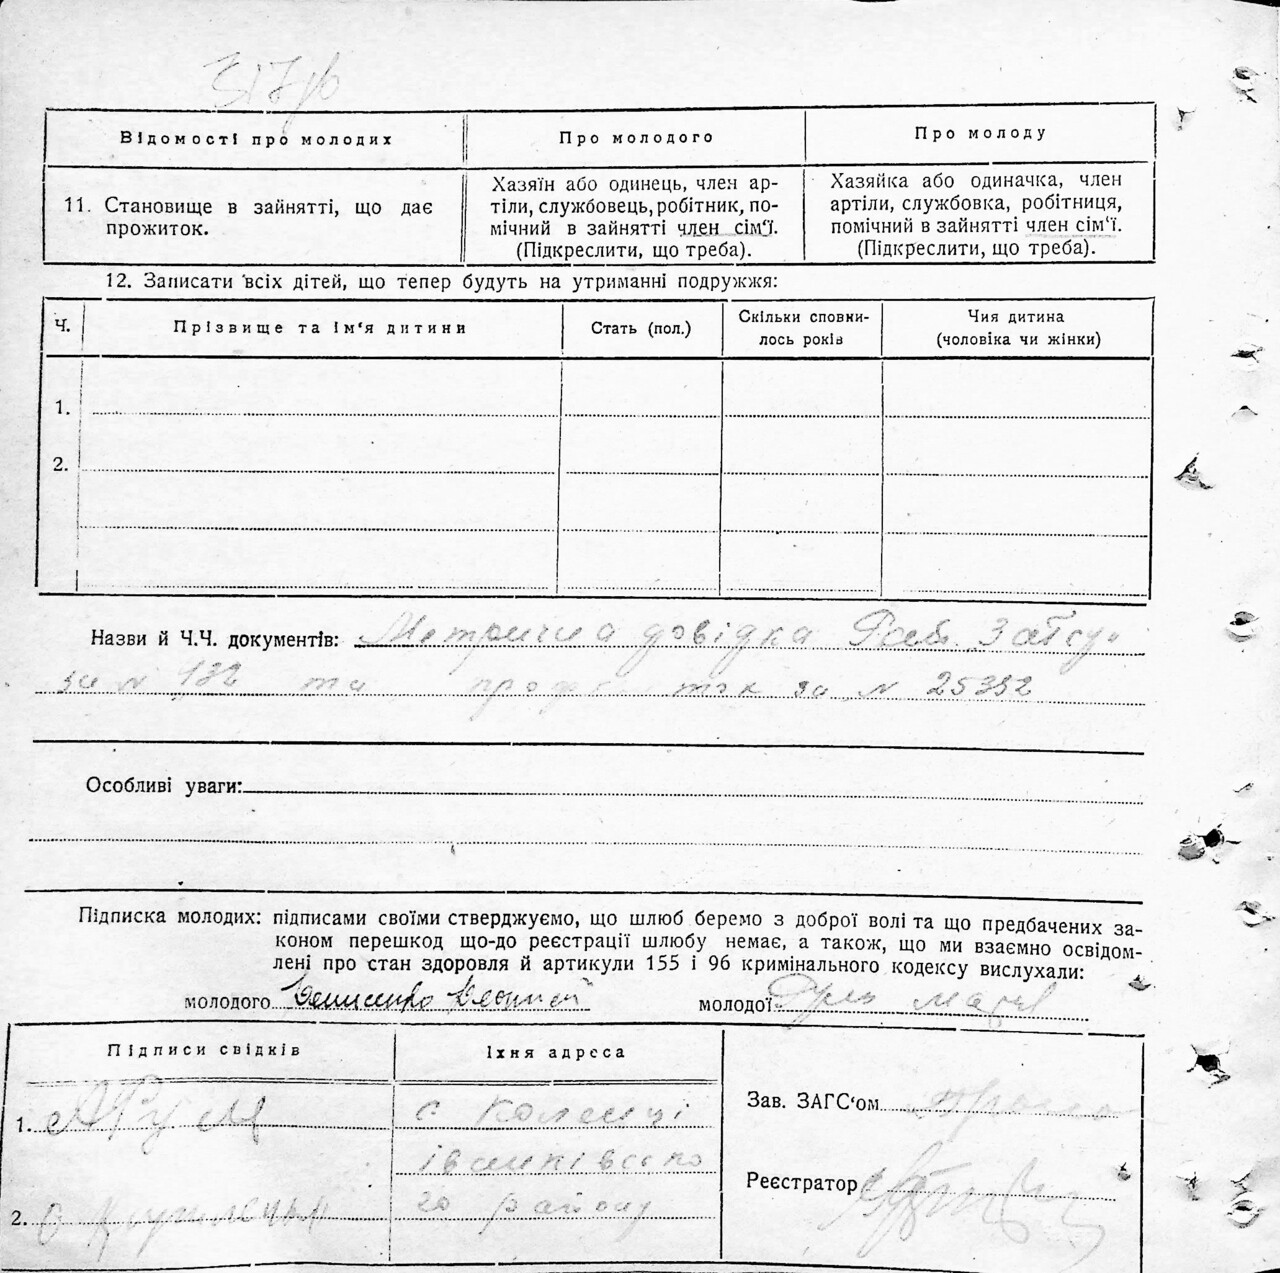 317
Відомості про молодих
Про молодого
Про молоду
11. Становище в зайнятті, що дає
прожиток.
Хазяїн або одинець, член ар-
тіли, службовець, робітник, по-
мічний в зайнятті член сім'ї.
(Підкреслити, що треба).
Хазяйка або одиначка, член
артіли, службовка, робітниця,
помічний в зайнятті член сім'ї.
(Підкреслити, що треба).
12. Записати всіх дітей, що тепер будуть на утриманні подружжя:
Ч.
Прізвище та ім'я дитини
Стать (пол.)
Скільки сповни-
лось років
Чия дитина
(чоловіка чи жінки)
1.
2.
Назви й Ч.Ч. документів: Метрична довідка Загсу
за N 132 та за N 25352
Особливі уваги:
Підписка молодих: підписами своїми стверджуємо, що шлюб беремо з доброї волі та що предбачених за-
коном перешкод що-до реєстрації шлюбу немає, а також, що ми взаємно освідом-
лені про стан здоровля й артикули 155 і 96 кримінального кодексу вислухали:
молодого
молодої
Підписи свідків
Їхня адреса
1.
с
Іванківсько
2.
го району
Зав. ЗАГС'ом
Реєстратор